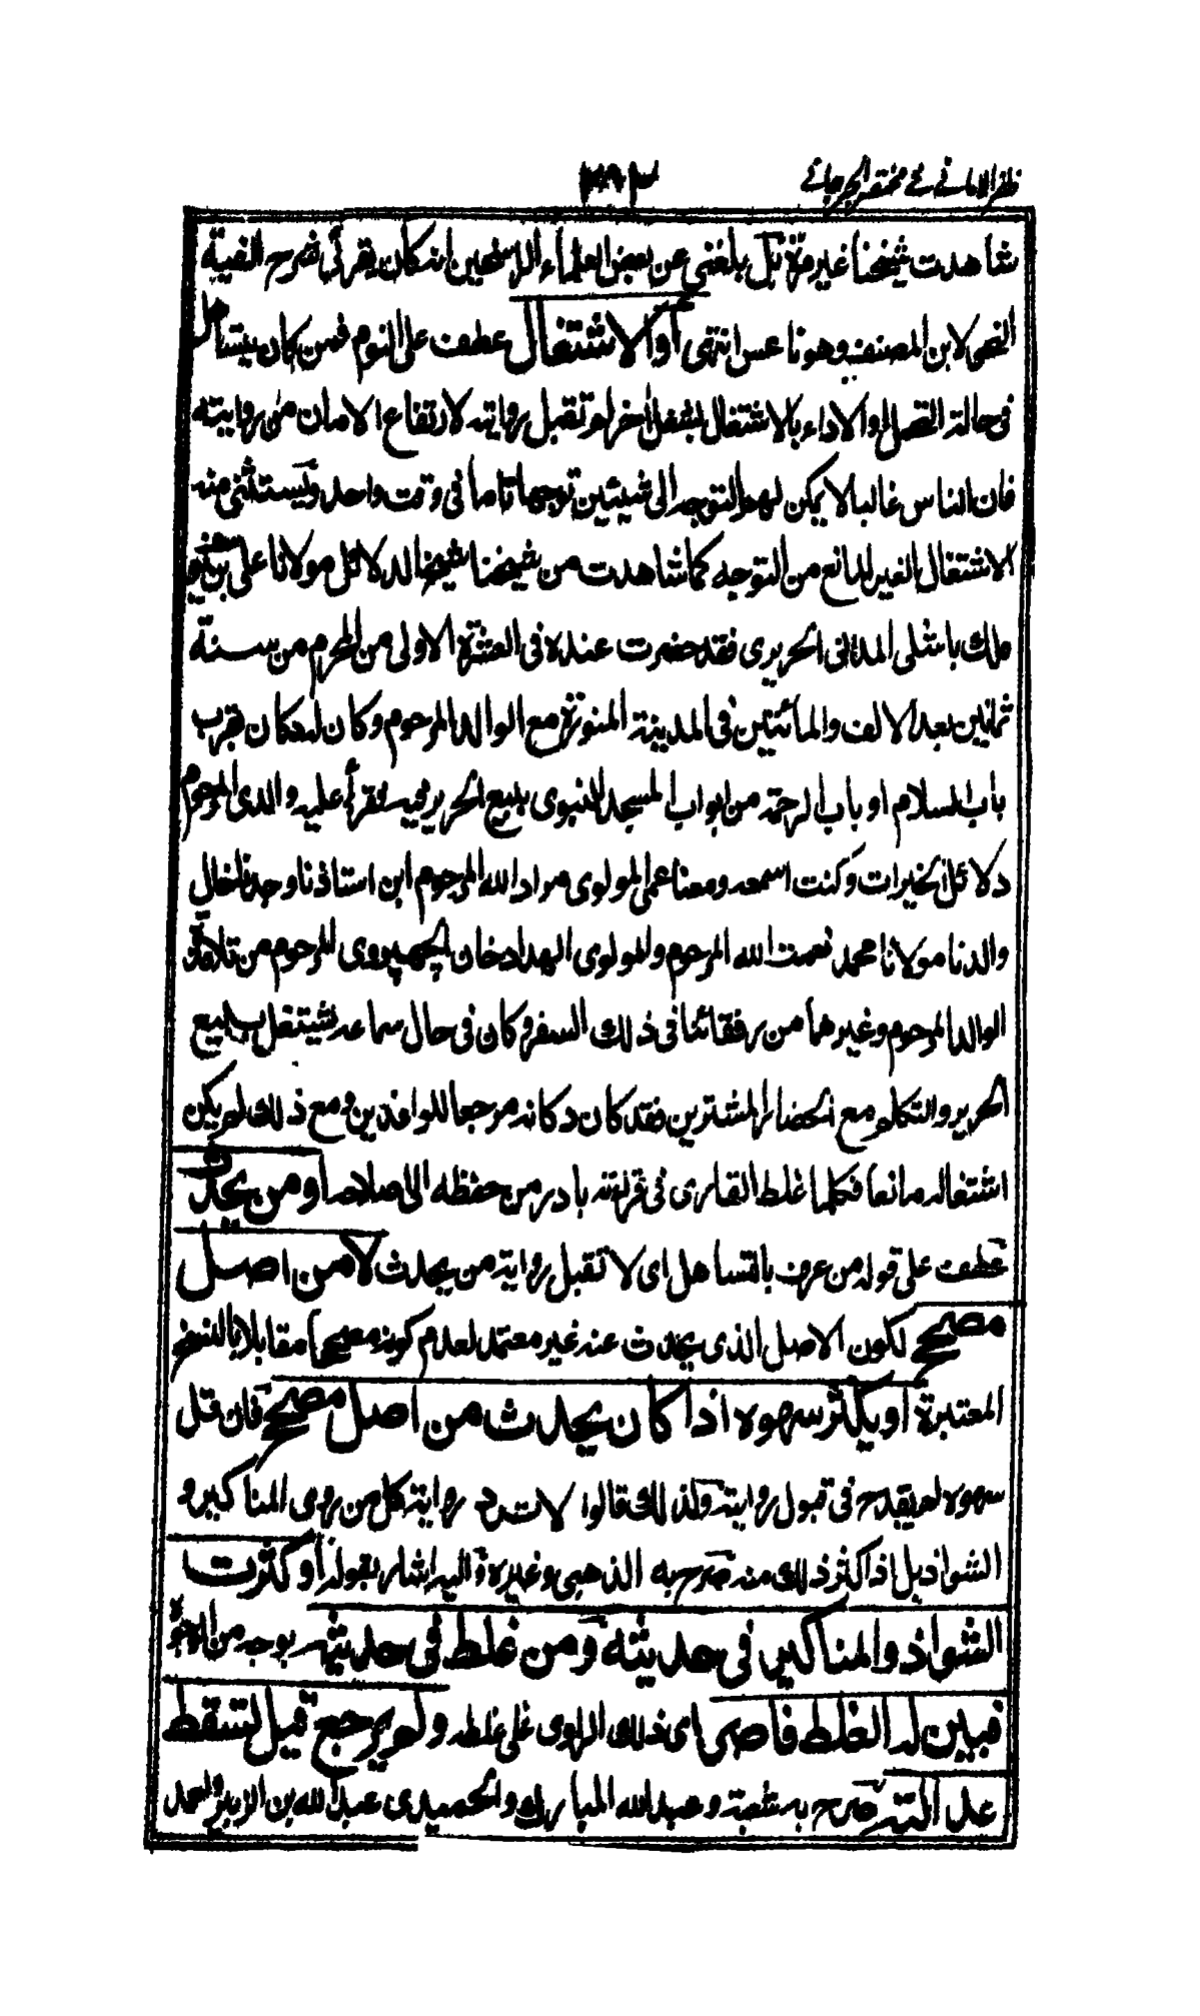 ظفر الامانے فے مختصر الجرجانے
٢٨٣
شاهدت شيخنا غير مرة بل بلغني عن بعض العلماء الراسخين انه كان يقرأ شرح الفية
النحو لابن المصنف وهو ناعس انتهى أو الاشتغال عطف على النوم فمن كان يتساهل
فى حالة التحمل او الاداء بالاشتغال لشغل أخر لم تقبل روايته لارتفاع الامان من روايته
فان الناس غالبا لا يمكن لهم التوجه الى شيئين توجها تاما فى وقت واحد ويستثنى منه
الاشتغال الغير المانع من التوجه كما شاهدت من شيخنا شيخ الدلائل مولانا على بن
ملك باشلى المدنى الحريرى فقد حضرت عنده فى العشرة الاولى من المحرم من سنة
ثمانين بعد الالف والمائتين فى المدينة المنورة مع الوالد المرحوم وكان له دكان بقرب
باب السلام او باب الرحمة من ابواب المسجد النبوى يبيع الحرير فيه فقرأ عليه والدى المرحوم
دلائل الخيرات وكنت اسمعه ومعنا عمى المولوى مراد الله المرحوم ابن استاذنا وجدنا خال
والدنا مولانا محمد نعمت الله المرحوم والمولوى الهداد خان الچهپروى المرحوم من تلامذة
الوالد المرحوم وغيرهما من رفقائنا فى ذلك السفر وكان فى حال سماعه يشتغل ببيع
الحرير والتكلم مع الحضار المشترين فقد كان دكانه مرجعا للوافدين ومع ذلك لم يكن
اشتغاله مانعا فكلما غلط القارى فى قراءته بادر من حفظه الى صلاحه او من يحدث
عطف على قوله من عرف بالتساهل اى لا تقبل رواية من يحدث لا من اصل
مصحح لكون الاصل الذى يحدث عنه غير معتمد لعدم كونه مصححا مقابلا بالنسخ
المعتبرة او يكثر سهوه اذا كان يحدث من اصل مصحح فان قل
سهوه لم يقدح فى قبول روايته ولذلك قالوا لا ترد رواية كل من روى المناكير و
الشواذ بل اذا كثر ذلك منه صرح به الذهبى وغيره واليه اشار بقوله أو كثرت
الشواذ والمناكير فى حديثه ومن غلط فى حديثه بوجه من الوجوه
فبين له الغلط فاصر اى ذلك الراوى على غلطه ولم يرجع قيل تسقط
عدالته صرح به شعبة وعبد الله المبارك والحميدى عبد الله بن الزبير واحمد